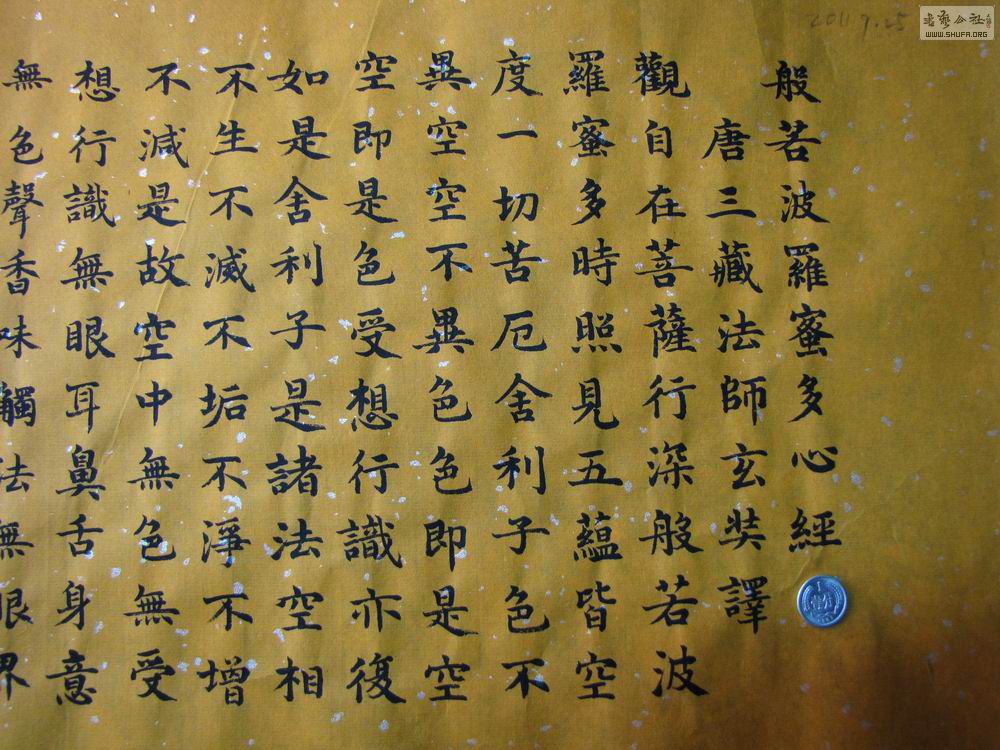 般若波羅蜜多心經
唐三藏法師玄奘譯
觀自在菩薩行深般若波
羅蜜多時照見五蘊皆空
度一切苦厄舍利子色不
異空空不異色色即是空
空即是色受想行識亦復
如是舍利子是諸法空相
不生不滅不垢不淨不增
不減是故空中無色無受
想行識無眼耳鼻舌身意
無色聲香味觸法無眼界
2011.7.25
书艺公社
WWW.SHUFA.ORG